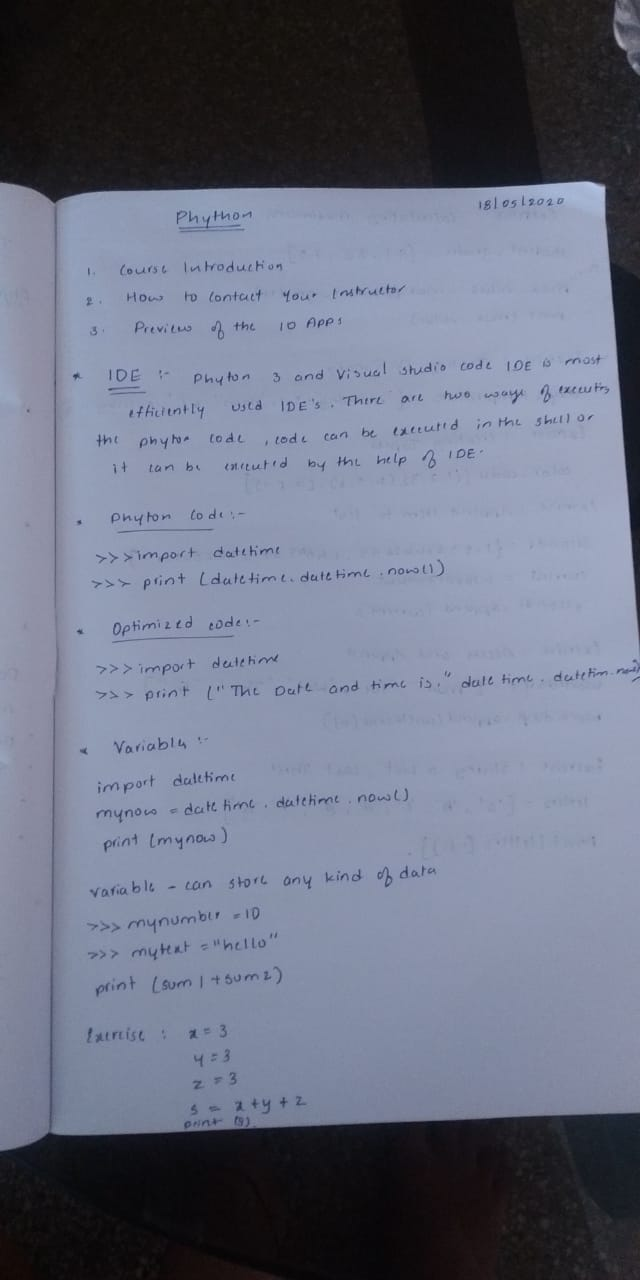 18/05/2020
Phython
1. Course Introduction
2. How to contact your Instructor
3. Preview of the 10 Apps
* IDE :- Phyton 3 and Visual studio code IDE is most
efficiently used IDE's. There are two ways of executing
the phyton code, code can be executed in the shell or
it can be executed by the help of IDE.
* Phyton code :-
>>> import datetime
>>> print (datetime.datetime.now())
* Optimized code :-
>>> import datetime
>>> print ("The Date and time is," date time. datetim.now)
* Variables :-
import datetime
mynow = date time. datetime. now()
print (mynow)
variable - can store any kind of data
>>> mynumber = 10
>>> mytext = "hello"
print (sum 1 + sum 2)
Exercise : x = 3
y = 3
z = 3
s = x + y + z
print (s)